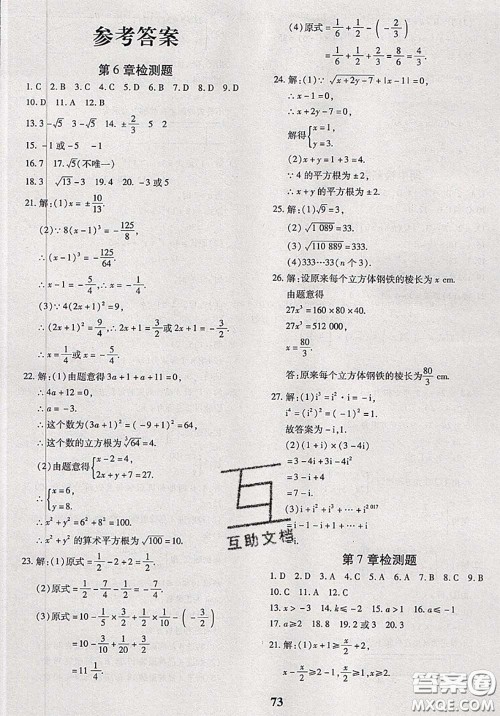 参考答案
第6章检测题
1. C 2. D 3. B 4. C 5. C 6. D 7. B 8. D 9. D
10. D 11. A 12. B
13. 3-√5 3-√5 14. ±2/3 5 2
15. -1或-5 -1
16. 7 17. √5(不唯一)
18. 3 √13-3 19. 4 20. -3或5
21. 解:(1)x=±10/13.
(2)∵8(x-1)³=-125/8,
∴(x-1)³=-125/64.
∴x-1=-5/4.
∴x=-1/4.
(3)∵4(2x+1)²=9,
∴(2x+1)²=9/4, ∴2x+1=±3/2,
∴x=1/4或x=-5/4.
22. 解:(1)由题意得3a+1+a+11=0,
∴4a+12=0,
∴a=-3.
∴这个数为(3a+1)²=64.
∴这个数的立方根为∛64=4.
(2)由题意得{x-2=4, 2x+y+7=27.
∴{x=6, y=8.
∴x²+y²=6²+8²=100.
∴x²+y²的算术平方根为10.
23. 解:(1)原式=1/2-2+2=1/2.
(2)原式=-1/2-2-1=-7/2.
(3)原式=10-1/5×3/2+1/2×2-(-3/4)
=10-3/10+1-(-3/4)
=11 1/4.
(4)原式=1/6+1/2-(-1/6)
=1/6+3/6+1/6=5/6.
24. 解:(1)∵√(x+2y-7)+|x-1|=0,
∴x-1=0,
∴x+2y-7=0,
解得{x=1, y=3.
(2)x+y=1+3=4,
∵4的平方根为±2,
∴x+y的平方根为±2.
25. 解:(1)√9=3,
(2)√1089=33.
(3)√110 889=333.
(4)333…33(n个3)
26. 解:设原来每个立方体钢铁的棱长为x cm.
由题意得
27x³=160×80×40.
27x³=512 000,
∴x=80/3.
答:原来每个立方体钢铁的棱长为80/3 cm.
27. 解:(1)i³=i²·i=-i,
i⁴=(i²)²=(-1)²=1.
故答案为-i,1.
(2)(1+i)×(3-4i)
=3-4i+3i-4i²
=3-i+4
=7-i.
(3)i+i²+i³+…+i²⁰¹⁷
=i-1-i+1+…+i
=i.
第7章检测题
1. D 2. A 3. C 4. A 5. A 6. A 7. B 8. B 9. C
10. C 11. A 12. B
13. x>-3 14. x≤-5 15. 2 16. a≤-1
17. a≥2 18. 18 19. 2或-1 20. a<4
21. 解:(1)x+1≥x/2+2,
x-x/2≥2-1, x/2≥1,
73
互助文档
答案圈
MXQE.COM